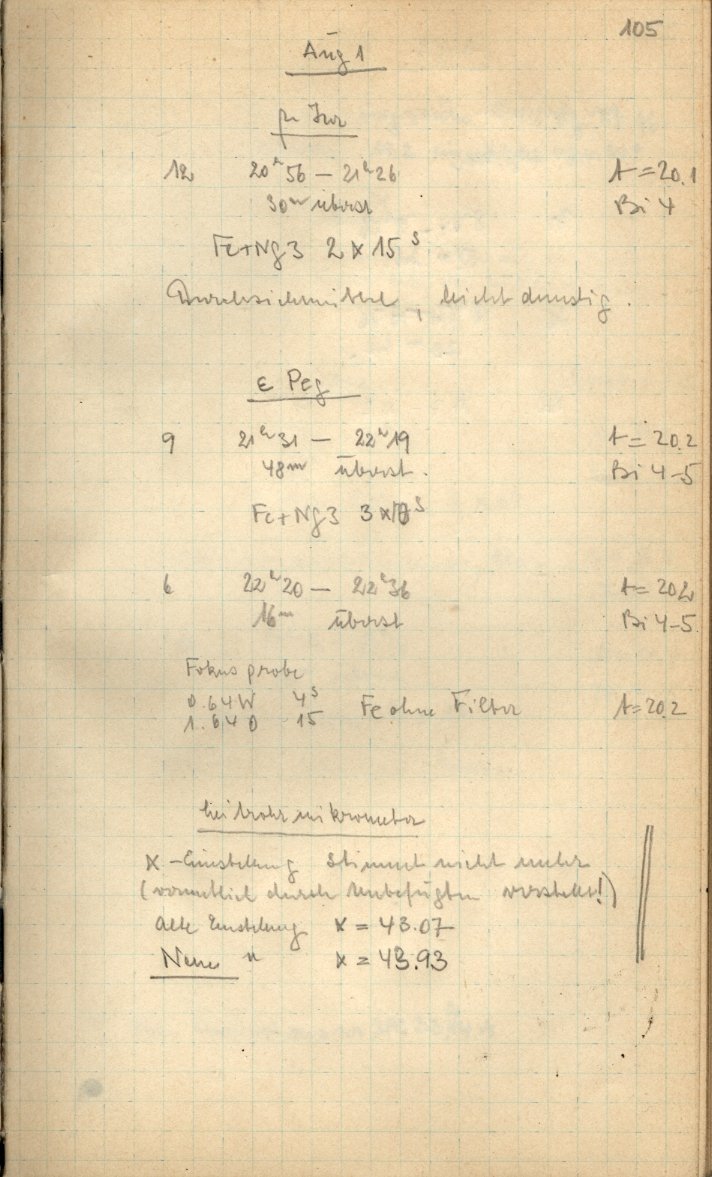 105
Aug 1
12 20ʰ56 – 21ʰ26 t = 20.1
30ᵐ überst Bi 4
Fc+Ng3 2 x 15ˢ
leicht dunstig.
ε Peg
9 21ʰ31 – 22ʰ19 t = 20.2
48ᵐ überst. Bi 4-5
Fc+Ng3 3 x
6 22ʰ20 – 22ʰ36 t = 20.2
16ᵐ überst Bi 4-5
Fokusprobe
0.64W 4ˢ Fc ohne Filter t = 20.2
1.64 O 15
Leitrohrmikrometer
X-Einstellung stimmt nicht mehr
(vermutlich durch Unbefugten verstellt!)
Alte Einstellung X = 43.07
Neue " X = 43.93